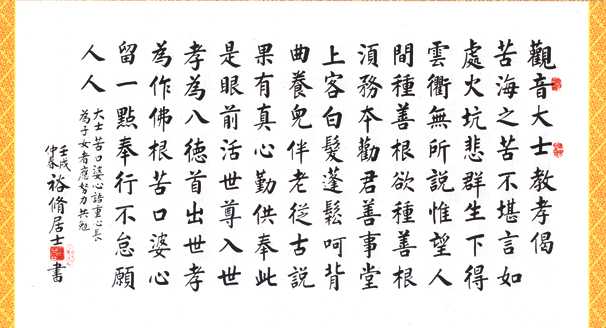 觀音大士教孝偈
苦海之苦不堪言如
處火坑悲群生下得
雲衢無所說惟望人
間種善根欲種善根
湏務夲勸君善事堂
上客白髮蓬鬆呵背
曲養兒伴老從古說
果有真心勤供奉此
是眼前活世尊入世
孝為八德首出世孝
為作佛根苦口婆心
留一點奉行不怠願
人人
大士苦口婆心語重心長
為子女者應努力共勉
壬戌仲春裕脩居士書